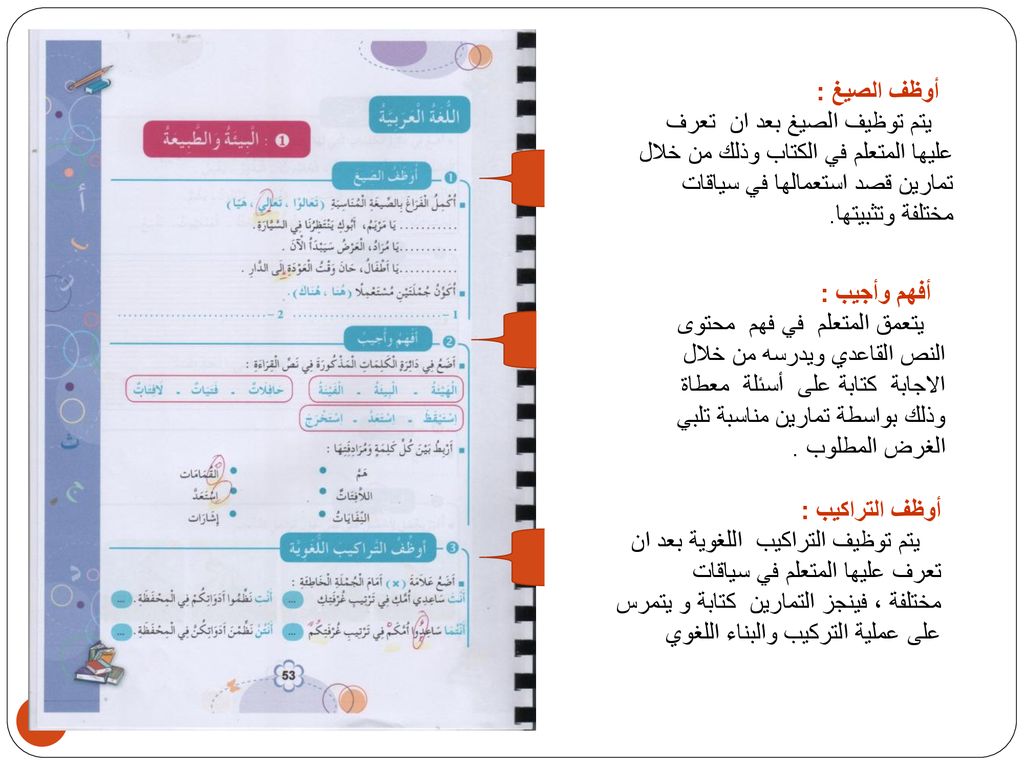 أوظف الصيغ :
يتم توظيف الصيغ بعد ان تعرف
عليها المتعلم في الكتاب وذلك من خلال
تمارين قصد استعمالها في سياقات
مختلفة وتثبيتها.
أفهم وأجيب :
يتعمق المتعلم في فهم محتوى
النص القاعدي ويدرسه من خلال
الاجابة كتابة على أسئلة معطاة
وذلك بواسطة تمارين مناسبة تلبي
الغرض المطلوب .
أوظف التراكيب :
يتم توظيف التراكيب اللغوية بعد ان
تعرف عليها المتعلم في سياقات
مختلفة ، فينجز التمارين كتابة و يتمرس
على عملية التركيب والبناء اللغوي
اللُّغَةُ الْعَرَبِيَّةُ
❶ : الْبِيئَةُ وَالطَّبِيعَةُ
❶ أُوَظِّفُ الصِّيَغَ
▪ أُكْمِلُ الْفَرَاغَ بِالصِّيغَةِ الْمُنَاسِبَةِ (تَعَالَوْا ، تَعَالَيْ ، هَيَّا)
........... يَا مَرْيَمُ، أَبُوكِ يَنْتَظِرُنَا فِي السَّيَّارَةِ.
...........يَا مُرَادُ، الْعَرْضُ سَيَبْدَأُ الْآنَ .
...........يَا أَطْفَالُ، حَانَ وَقْتُ الْعَوْدَةِ إِلَى الدَّارِ .
▪ أُكَوِّنُ جُمْلَتَيْنِ مُسْتَعْمِلًا (هُنَا ، هُنَاكَ).
1 – ........................... 2 – ...........................
❷ أَفْهَمُ وَأُجِيبُ
▪ أَضَعُ فِي دَائِرَةٍ الْكَلِمَاتِ الْمَذْكُورَةَ فِي نَصِّ الْقِرَاءَةِ :
الْهَيْئَةُ - الْبِيئَةُ - الْفَيْئَةُ
حَافِلَاتٌ - فَتَيَاتٌ - لَافِتَاتٌ
اِسْتَيْقَظَ - اِسْتَعَدَّ - اِسْتَخْرَجَ
▪ أَرْبِطُ بَيْنَ كُلِّ كَلِمَةٍ وَمُرَادِفَتِهَا :
هَمَّ • • الْقُمَامَات
اللَّافِتَاتُ • • اِسْتَعَدَّ
النِّفَايَاتُ • • إِشَارَات
❸ أُوَظِّفُ التَّرَاكِيبَ اللُّغَوِيَّةَ
▪ أَضَعُ عَلَامَةَ (×) أَمَامَ الْجُمْلَةِ الْخَاطِئَةِ :
أَنْتَ سَاعِدِي أُمَّكِ فِي تَرْتِيبِ غُرْفَتِكِ ... أَنْتِ نَظِّمُوا أَدَوَاتِكُمْ فِي الْمِحْفَظَةِ. ...
أَنْتُمَا سَاعِدُوا أُمَّكُمْ فِي تَرْتِيبِ غُرْفَتِكُمْ ... أَنْتُنَّ نَظِّمْنَ أَدَوَاتِكُنَّ فِي الْمِحْفَظَةِ. ...
53
أ
ب
د
ث
ج
د